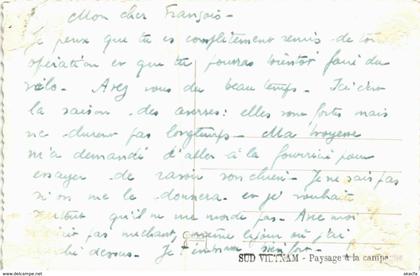 Mon cher François -
Je pense que tu es complètement remis de ton
opération et que tu pourras bientôt faire du
vélo. Avez vous du beau temps. Ici c'est
la saison des averses: elles sont fortes mais
ne durent pas longtemps. Ma voyene
m'a demandé d'aller à la fourrière pour
essayer de ravoir son chien. Je ne sais pas
si on me le donnera et je souhaite
surtout qu'il ne me morde pas. Avec moi
pas méchant, même le jour où j'ai
marché dessus. Je t'embrasse bien fort.
SUD VIETNAM - Paysage à la campagne